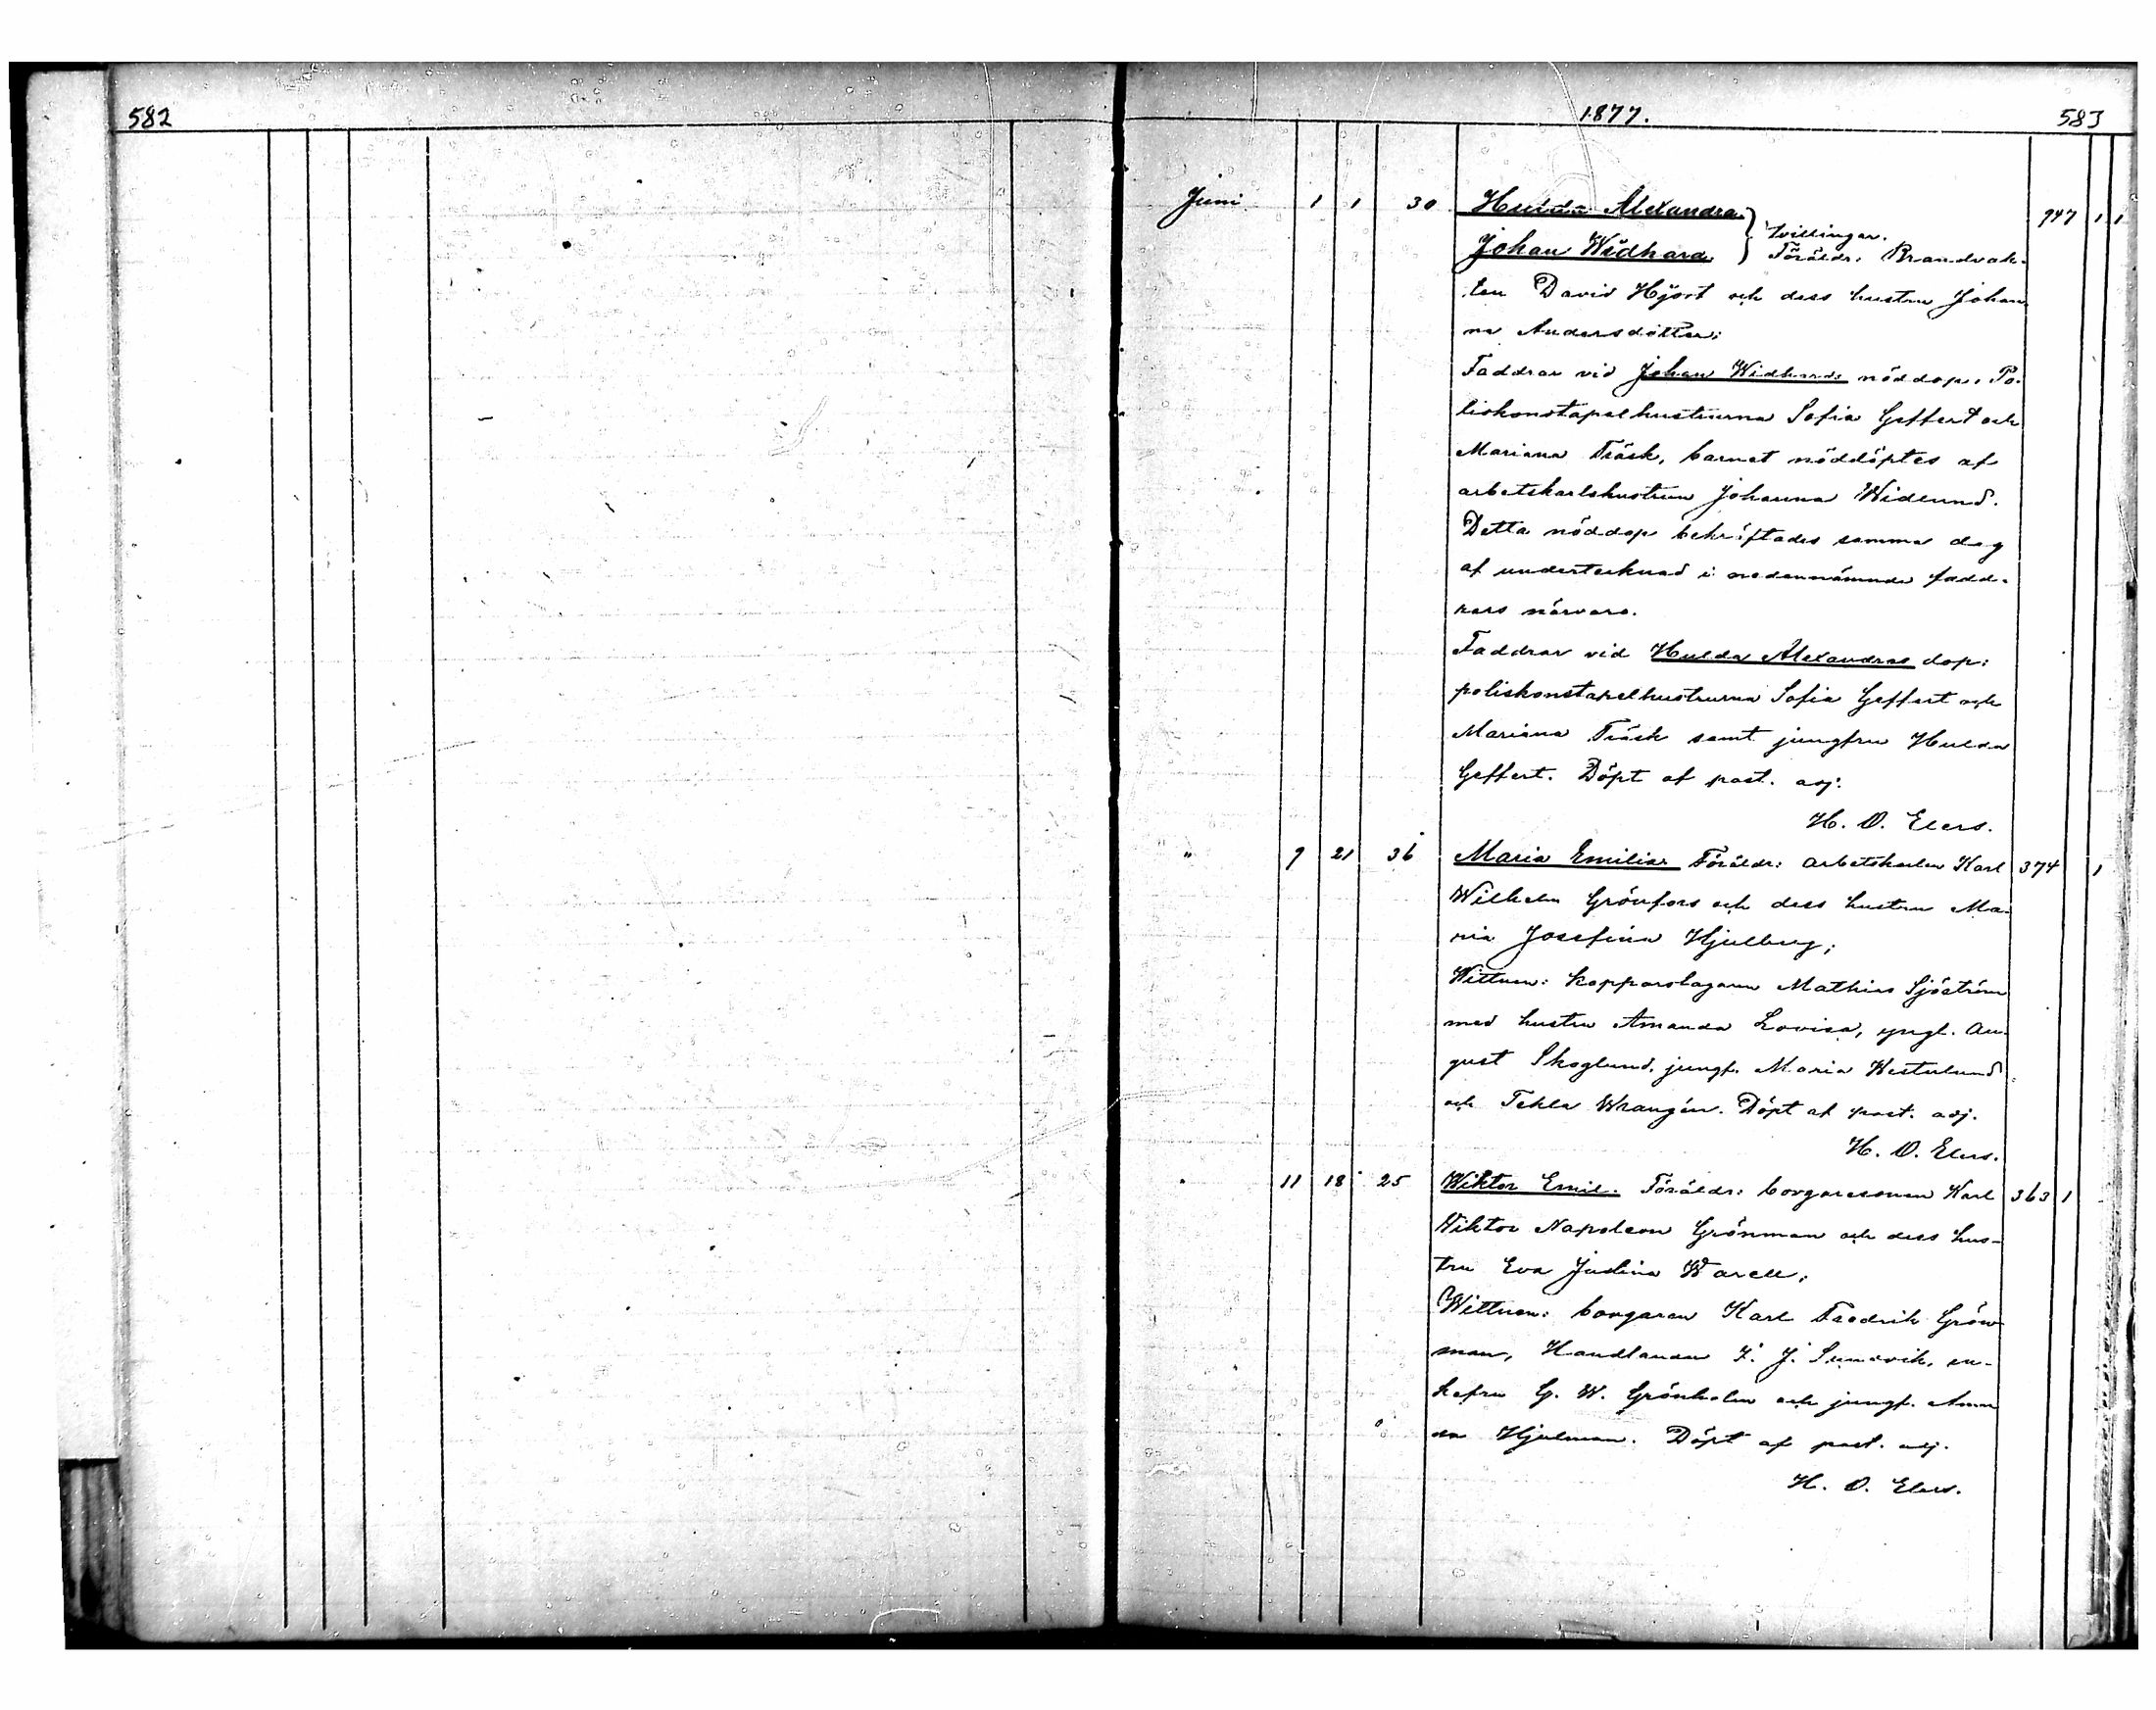 582
1877. 583
Juni 1 1 30 Hulda Alexandra } Tvillingar. 947 1 1
Johan Widhard } Föräldr. Brandvak-
ten David Hjort och dess hustru Johan
na Andersdotter;
Faddrar vid Johan Widhards nöddop: Po-
liskonstapelhustrurna Sofia Geffert och
Mariana Träsk, barnet nöddöptes af
arbetskarlshustrun Johanna Widlund.
Detta nöddop bekräftades samma dag
af undertecknad i nedannämnde fadd-
rars närvaro.
Faddrar vid Hulda Alexandras dop:
poliskonstapelhustrurna Sofia Geffert och
Mariana Träsk samt jungfru Hulda
Geffert. Döpt af past. adj.
H. O. Elers.
" 9 21 36 Maria Emilia. Föräldr: arbetskarlen Karl 374 1
Wilhelm Grönfors och dess hustru Ma-
ria Josefina Hjulberg;
Wittnen: kopparslagaren Mathias Sjöström
med hustru Amanda Lovisa, yngl. Au-
gust Skoglund, jungf. Maria Westerlund
och Tekla Wrangén. Döpt af past. adj.
H. O. Elers.
" 11 18 25 Wiktor Emil. Föräldr: borgaresonen Karl 363 1
Wiktor Napoleon Grönman och dess hus-
tru Eva Justina Warell;
Wittnen: borgaren Karl Fredrik Grön-
man, Handlanden J. Sundvik, en-
kefru G. W. Grönholm och jungf. Aman
da Hjelman. Döpt af past. adj.
H. O. Elers.